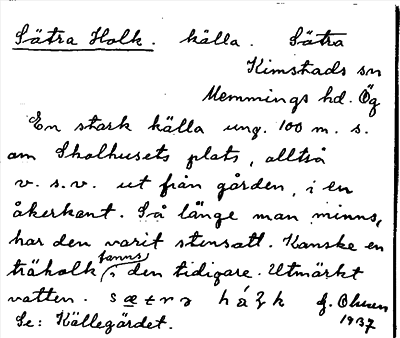 Sätra Holk. källa. Sätra
Kimstads sn
Memmings hd. Ög
En stark källa ung. 100 m. s.
om Skolhusets plats, alltså
v. s. v. ut från gården, i en
åkerkant. Så länge man minns,
har den varit stensatt. Kanske en
träholk fanns i den tidigare. Utmärkt
vatten.
Se: Källegärdet. 1937